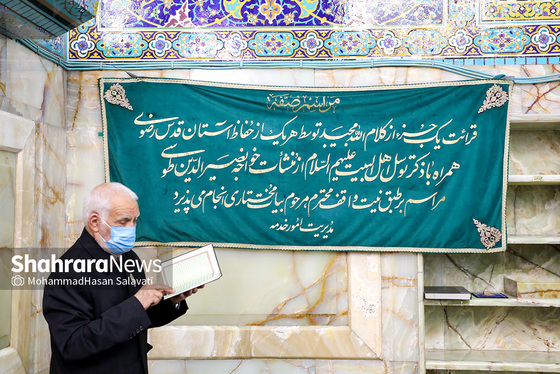 مراسم صفّه
قرائت یک جزء از کلام الله مجید توسط هر یک از حفاظ آستان قدس رضوی
همراه با ذکر توسل اهل البیت علیهم السلام از منشآت خواجه نصیرالدین طوسی
مراسم بر طبق نیت واقف محترم مرحوم بیامختاری انجام می پذیرد
مدیریت امور خدمه
ShahraraNews
MohammadHasan Salavati